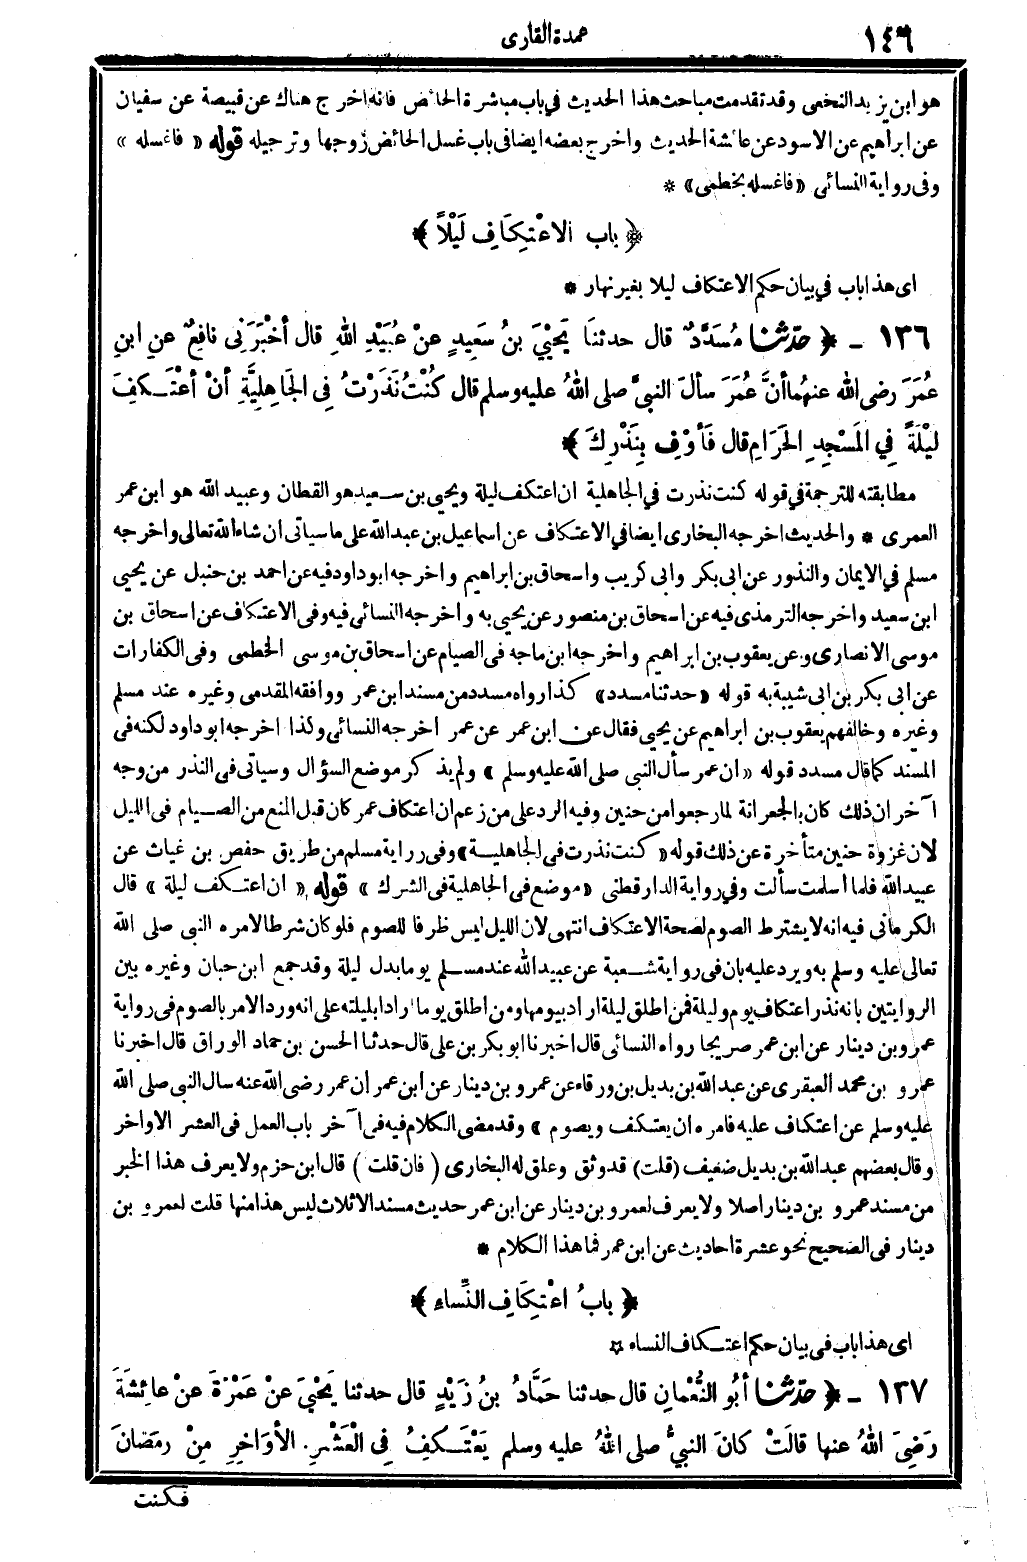 ١٤٦
عمدة القارى
هو ابن يزيد النخعى وقد تقدمت مباحث هذا الحديث في باب مباشرة الحائض فانه اخرج هناك عن قبيصة عن سفيان
عن ابراهيم عن الاسود عن عائشة الحديث واخرج بعضه ايضا فى باب غسل الحائض زوجها وترجيله قوله « فاغسله »
وفى رواية النسائى « فاغسله بخطمى » *
﴿ باب الاعْتِكَافِ لَيْلاً ﴾
اى هذا باب في بيان حكم الاعتكاف ليلا بغير نهار *
١٣٦ - ﴿ حدثنا مُسَدَّدٌ قال حدثنا يَحْيَىَ بنُ سَعِيدٍ عنْ عُبَيْدِ اللهِ قال أخْبَرَنِى نافِعٌ عنِ ابنِ
عُمَرَ رضى الله عنهُما أنَّ عُمَرَ سألَ النبيَّ صلى اللهُ عليه وسلم قال كُنْتُ نَذَرْتُ فِي الجَاهِلِيَّةِ أنْ أعْتَكِفَ
لَيْلَةً فِي المَسْجِدِ الحَرَامِ قال فَأَوْفِ بِنَذْرِكَ ﴾
مطابقته للترجمة في قوله كنت نذرت في الجاهلية ان اعتكف ليلة ويحيى بن سعيد هو القطان وعبيد الله هو ابن عمر
العمرى * والحديث اخرجه البخارى ايضا في الاعتكاف عن اسماعيل بن عبد الله على ما سياتى ان شاء الله تعالى واخرجه
مسلم في الايمان والنذور عن ابى بكر وابى كريب واسحاق بن ابراهيم واخرجه ابو داود فيه عن احمد بن حنبل عن يحيى
ابن سعيد واخرجه الترمذى فيه عن اسحاق بن منصور عن يحيى به واخرجه النسائى فيه وفى الاعتكاف عن اسحاق بن
موسى الانصارى وعن يعقوب بن ابراهيم واخرجه ابن ماجه فى الصيام عن اسحاق بن موسى الخطمى وفى الكفارات
عن ابى بكر بن ابى شيبة به قوله « حدثنا مسدد » كذا رواه مسدد من مسند ابن عمر ووافقه المقدمى وغيره عند مسلم
وغيره وخالفهم يعقوب بن ابراهيم عن يحيى فقال عن ابن عمر عن عمر اخرجه النسائى وكذا اخرجه ابو داود لكنه فى
المسند كما قال مسدد قوله « ان عمر سأل النبى صلى الله عليه وسلم » ولم يذكر موضع السؤال وسياتى فى النذر من وجه
آخر ان ذلك كان بالجعرانة لما رجعوا من حنين وفيه الرد على من زعم ان اعتكاف عمر كان قبل المنع من الصيام فى الليل
لان غزوة حنين متأخرة عن ذلك قوله « كنت نذرت فى الجاهلية » وفى رواية مسلم من طريق حفص بن غياث عن
عبيد الله فلما أسلمت سألت وفي رواية الدارقطنى « موضع فى الجاهلية فى الشرك » قوله « ان اعتكف ليلة » قال
الكرمانى فيه انه لا يشترط الصوم لصحة الاعتكاف انتهى لان الليل ليس ظرفا للصوم فلو كان شرطا لامره النبى صلى الله
تعالى عليه وسلم به ويرد عليه بان فى رواية شعبة عن عبيد الله عند مسلم يوما بدل ليلة وقد جمع ابن حبان وغيره بين
الروايتين بانه نذر اعتكاف يوم وليلة فمن اطلق ليلة اراد بيومها ومن اطلق يوما اراد بليلته على انه ورد الامر بالصوم فى رواية
عمرو بن دينار عن ابن عمر صريحا رواه النسائى قال اخبرنا ابو بكر بن على قال حدثنا الحسن بن حماد الوراق قال اخبرنا
عمرو بن محمد العبقرى عن عبد الله بن بديل بن ورقاء عن عمرو بن دينار عن ابن عمر ان عمر رضى الله عنه سال النبى صلى الله
عليه وسلم عن اعتكاف عليه فامره ان يعتكف ويصوم » وقد مضى الكلام فيه فى آخر باب العمل فى العشر الاواخر
وقال بعضهم عبد الله بن بديل ضعيف (قلت) قد وثق وعلق له البخارى (فان قلت) قال ابن حزم ولا يعرف هذا الخبر
من مسند عمرو بن دينار اصلا ولا يعرف لعمرو بن دينار عن ابن عمر حديث مسند الا ثلاث ليس هذا منها قلت لعمرو بن
دينار فى الصحيح نحو عشرة احاديث عن ابن عمر فما هذا الكلام *
﴿ بابُ اعْتِكَافِ النِّساءِ ﴾
اى هذا باب فى بيان حكم اعتكاف النساء *
١٣٧ - ﴿ حدثنا أبُو النُّعْمانِ قال حدثنا حَمَّادُ بنُ زَيْدٍ قال حدثنا يَحْيَىَ عنْ عَمْرَةَ عنْ عائِشَةَ
رَضِيَ اللهُ عنها قالَتْ كانَ النبيُّ صلى اللهُ عليه وسلم يَعْتَكِفُ فِي الْعَشْرِ الأَوَاخِرِ مِنْ رمَضَانَ
فكنت